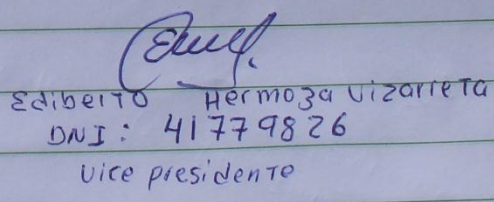 Ediberto Hermoza Vizarreta
DNI: 41779826
Vice presidente